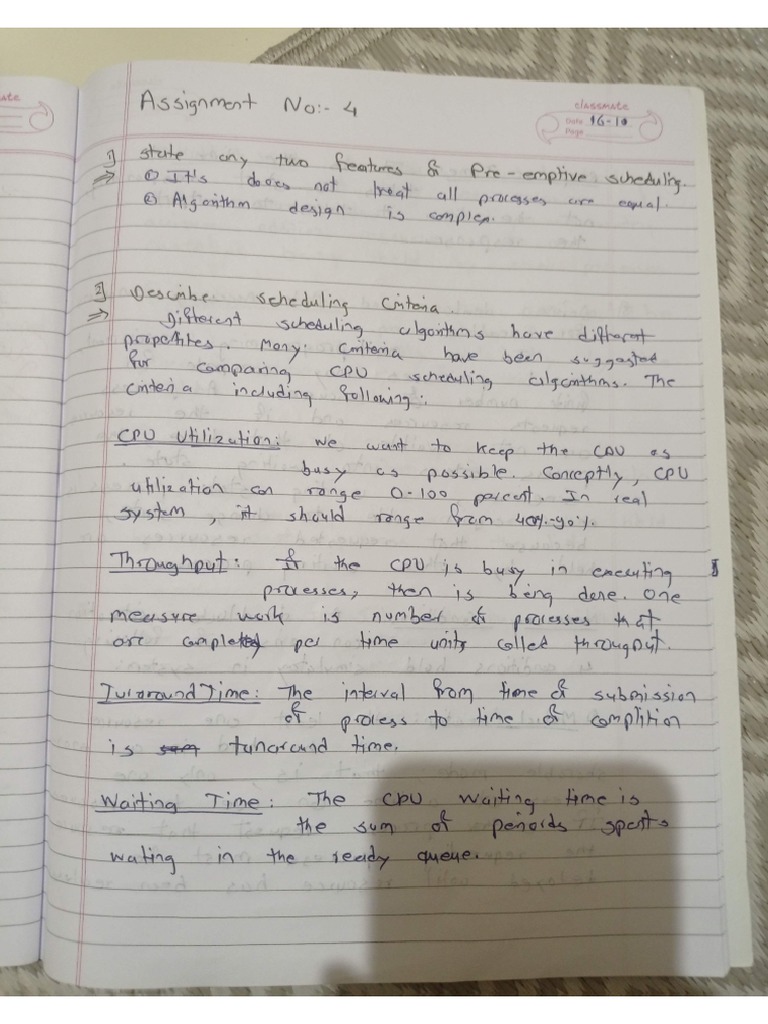 Assignment No:- 4
classmate
Date 16-10
Page
1] State any two features of Pre-emptive scheduling.
⇒ ① It's does not treat all processes are equal.
② Algorithm design is complex.
2] Describe scheduling Criteria.
⇒ Different scheduling algorithms have different
propertites. Many Criteria have been suggested
for comparing CPU scheduling algorithms. The
criteria including following:
CPU Utilization: We want to keep the CPU as
busy as possible. Conceptly, CPU
utilization can range 0-100 percent. In real
system, it should range from 40%-90%.
Throughput: If the CPU is busy in executing
processes, then is being done. One
measure work is number of processes that
are completed per time unit, called throughput.
Turaround Time: The interval from time of submission
of process to time of complition
is tunaround time.
Waiting Time: The CPU waiting time is
the sum of periods spents
wating in the ready queue.